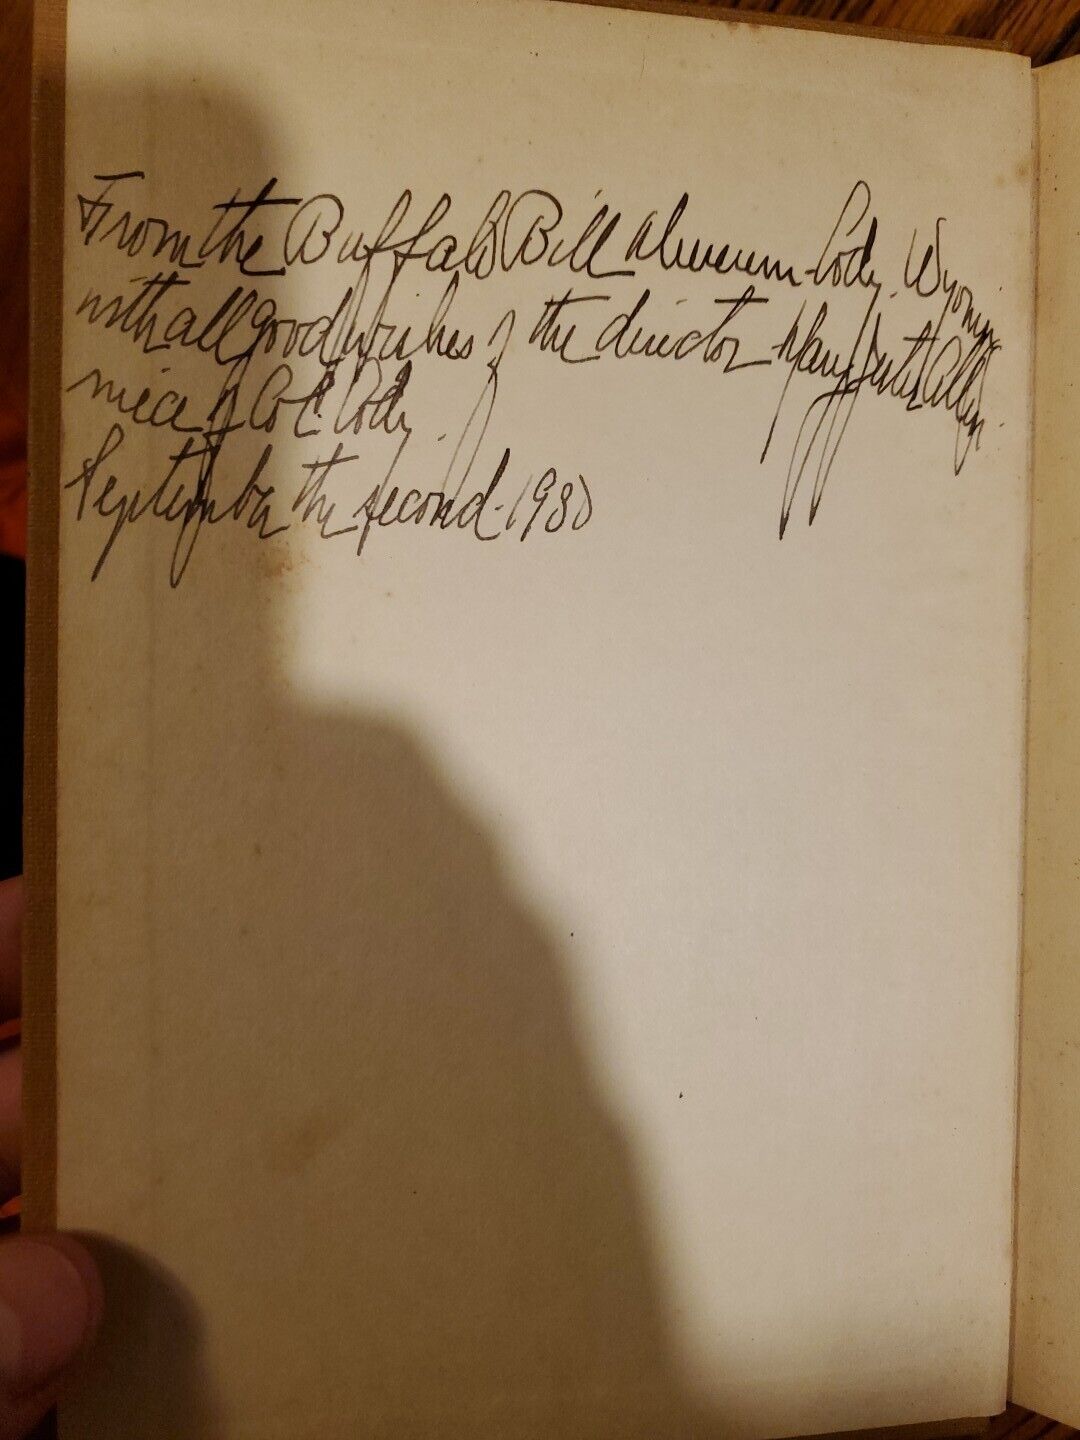 From the Buffalo Bill Museum - Cody, Wyoming
with all good wishes of the director Mary Jester Allen
niece of Col. Cody.
September the second - 1930